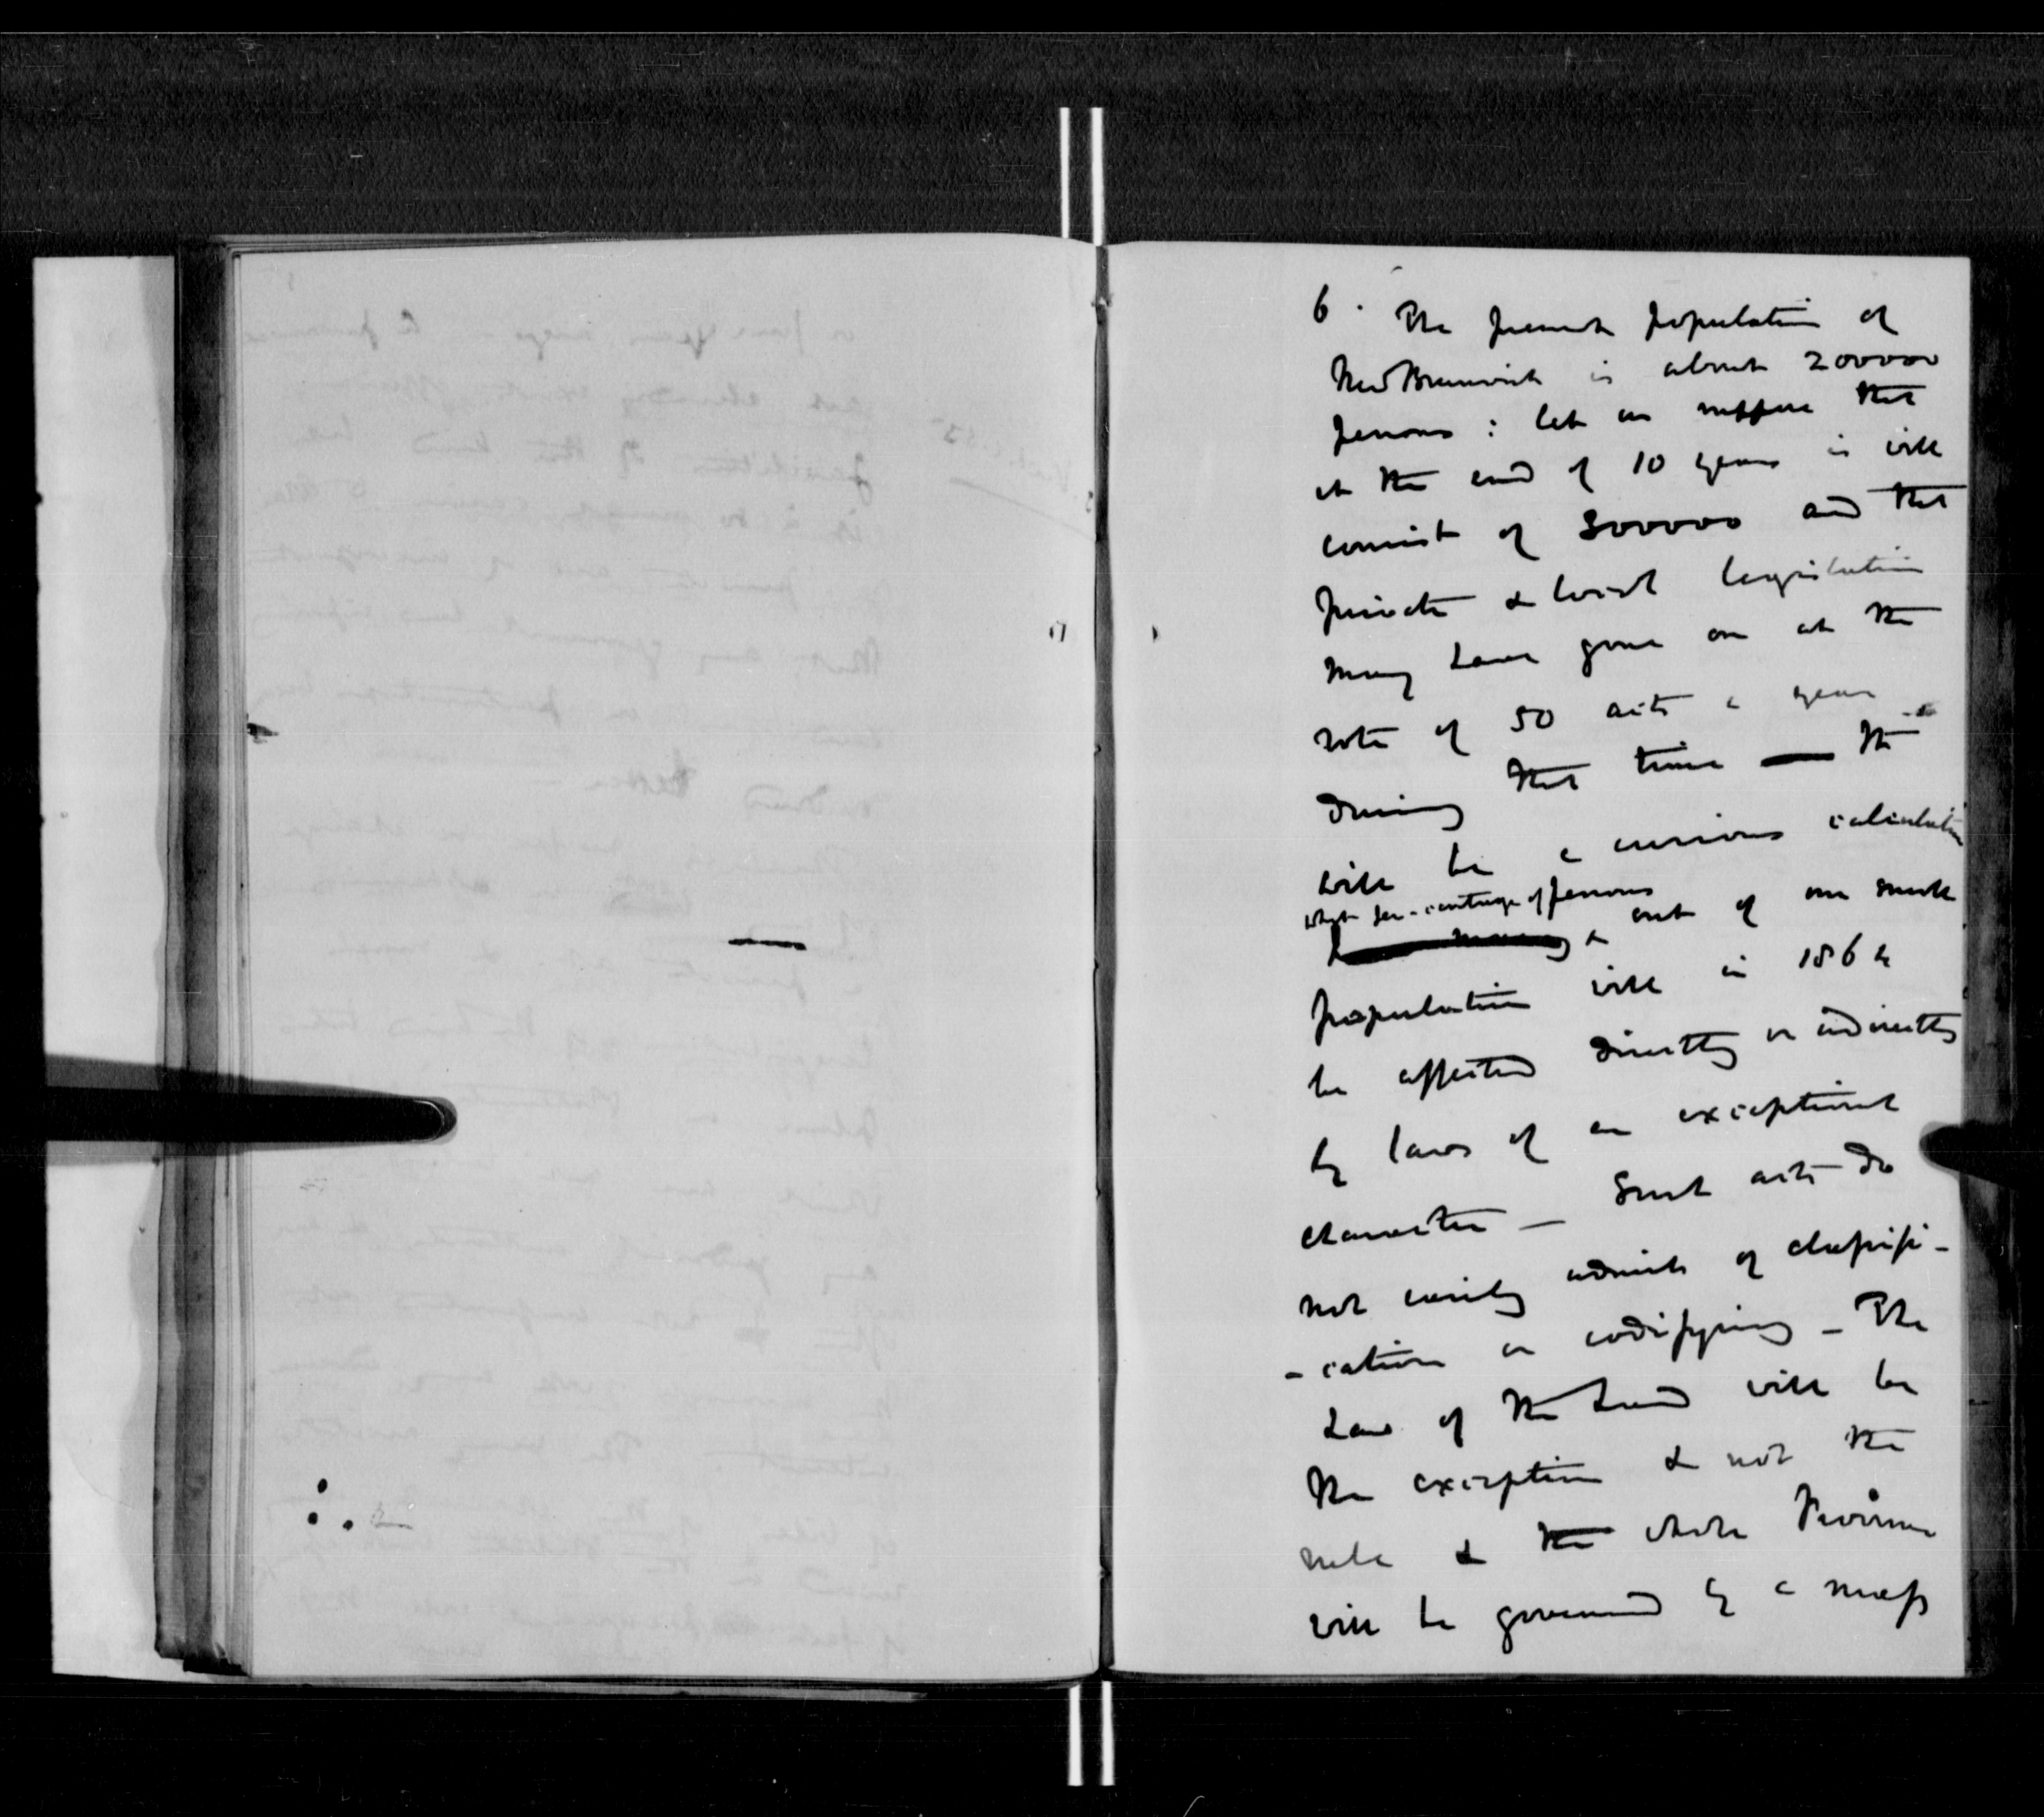 6. The present population of
New Brunswick is about 200000
persons : let us suppose that
at the end of 10 years it will
consist of 300000 and that
private & local legislation
may have gone on at the
rate of 50 acts a year
during that time — it
will be a curious calculation
what per-centage of persons
out of our small
population will in 1864
be affected directly or indirectly
by laws of an exceptional
character — Such acts do
not easily admit of classifi-
-cation or codifying — The
Law of the Land will be
the exception & not the
rule & the whole Province
will be governed by a mass